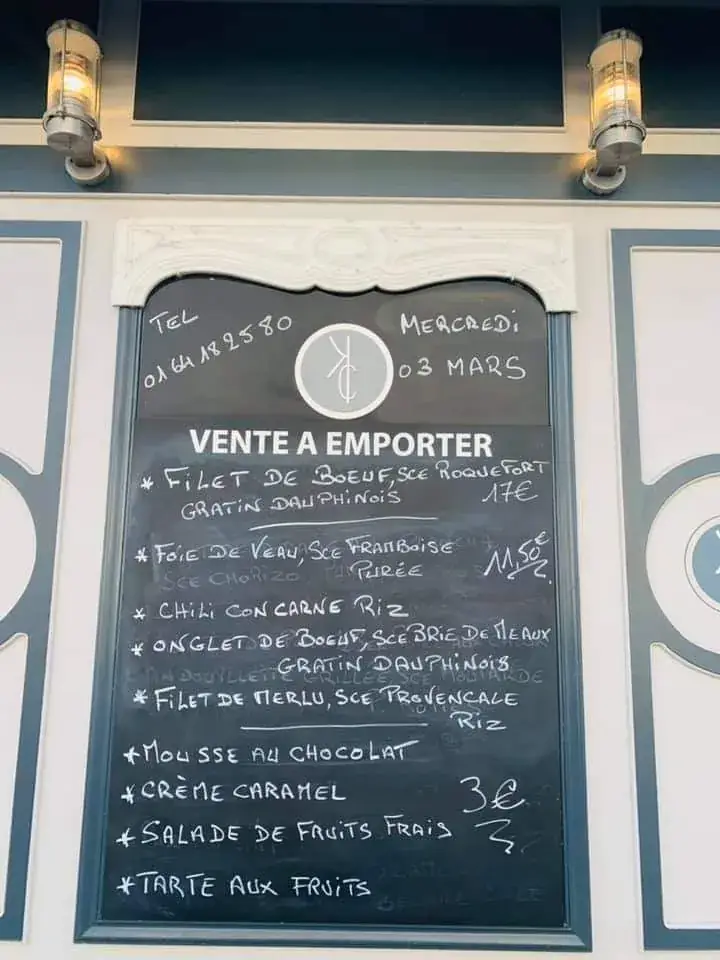 TEL
01 64 18 25 80
MERCREDI
03 MARS
VENTE A EMPORTER
* FILET DE BOEUF, SCE ROQUEFORT
GRATIN DAUPHINOIS 17€
* FOIE DE VEAU, SCE FRAMBOISE
PURÉE 11,50€
SCE CHORIZO
* CHILI CON CARNE RIZ
* ONGLET DE BOEUF, SCE BRIE DE MEAUX
GRATIN DAUPHINOIS
ANDOUILLETTE GRILLÉE, SCE MOUTARDE
* FILET DE MERLU, SCE PROVENCALE
RIZ
* MOUSSE AU CHOCOLAT
* CRÈME CARAMEL 3€
* SALADE DE FRUITS FRAIS
* TARTE AUX FRUITS